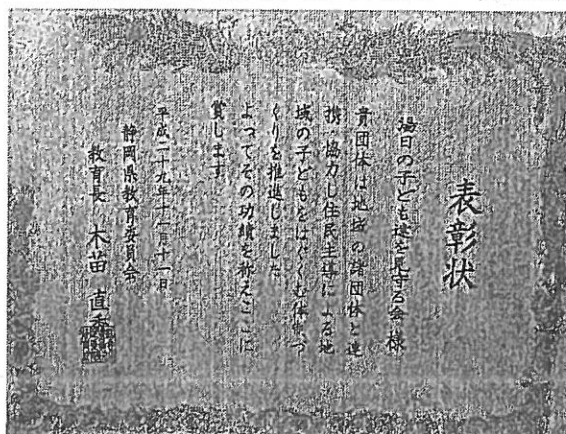 表彰状
湯日の子ども達を見守る会 様
貴団体は地域の諸団体と連
携・協力し住民主導による地
域の子どもをはぐくむ体制づ
くりを推進しました
よってその功績を称えここに
賞します
平成二十九年十一月十一日
静岡県教育委員会
教育長 木苗 直秀